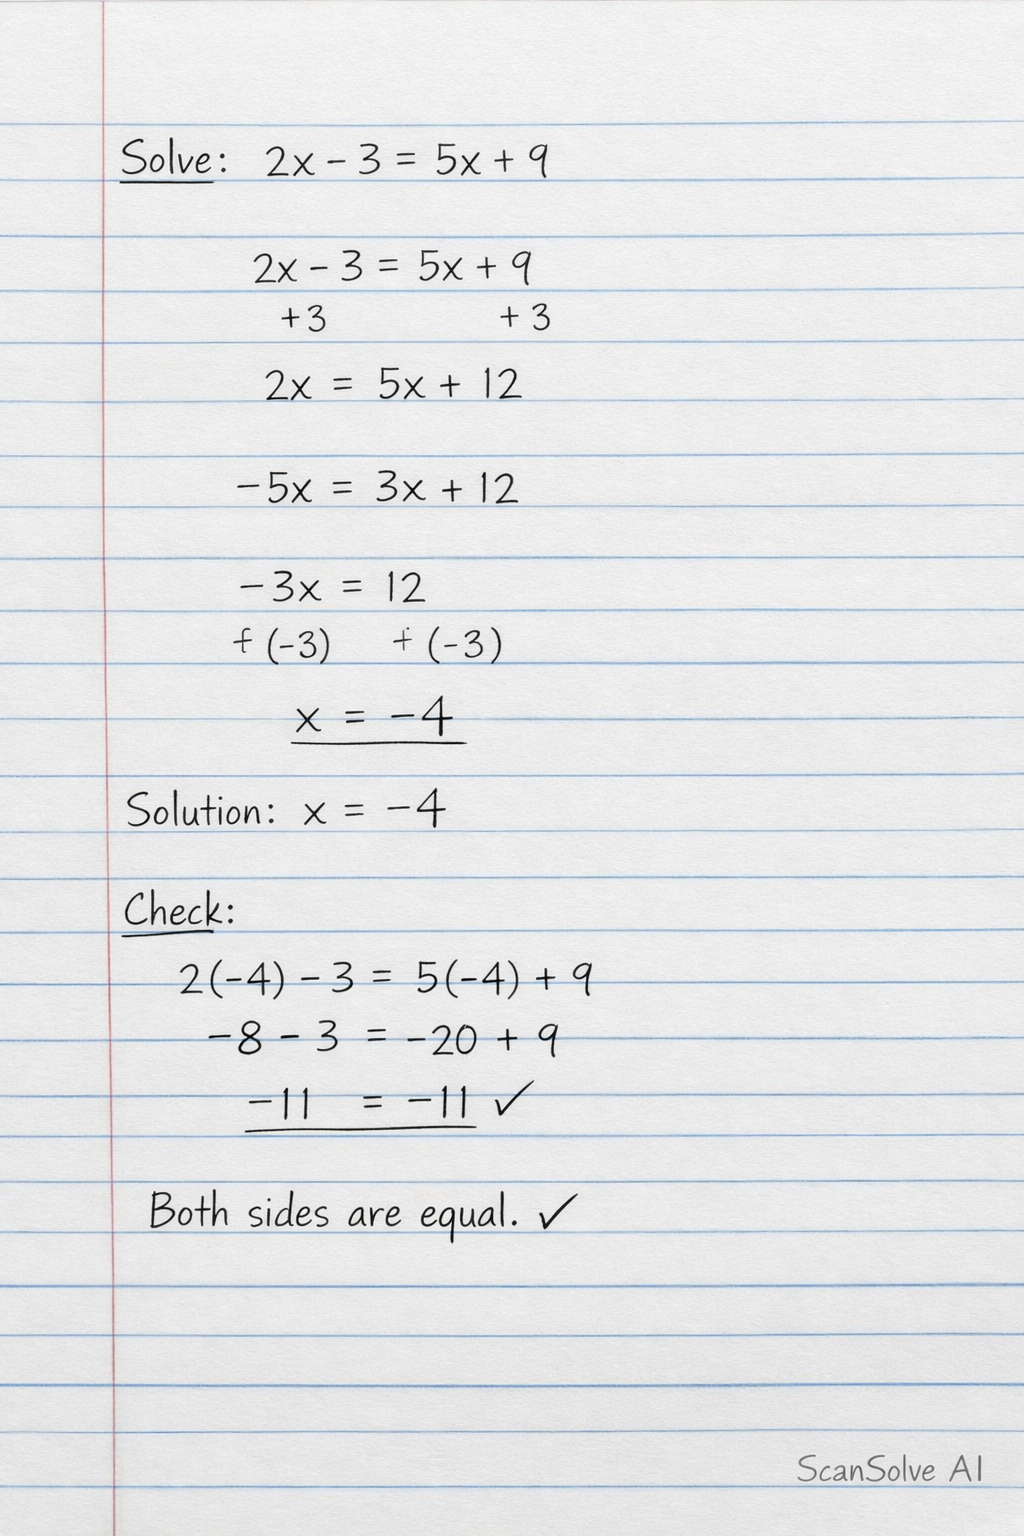 Solve: 2x - 3 = 5x + 9
2x - 3 = 5x + 9
+3 +3
2x = 5x + 12
-5x = 3x + 12
-3x = 12
+ (-3) + (-3)
x = -4
Solution: x = -4
Check:
2(-4) - 3 = 5(-4) + 9
-8 - 3 = -20 + 9
-11 = -11 ✓
Both sides are equal. ✓
ScanSolve AI